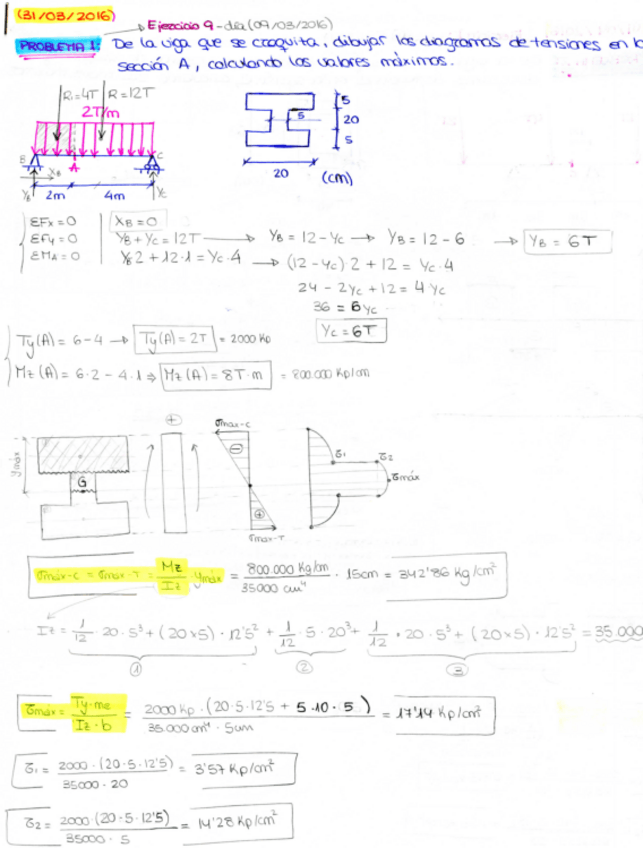 (31/03/2016)
Ejercicio 9 - día (09/03/2016)
PROBLEMA 1: De la viga que se croquita, dibujar los diagramas de tensiones en la
sección A, calculando los valores máximos.
R=4T R=12T
2T/m
B A C
XB
YB 2m 4m YC
5
20
5
5
20 (cm)
ΣFx = 0
ΣFy = 0
ΣMA = 0
XB = 0
YB + YC = 12T → YB = 12 - YC → YB = 12 - 6 → YB = 6T
YB·2 + 12·1 = YC·4 → (12 - YC)·2 + 12 = YC·4
24 - 2YC + 12 = 4YC
36 = 6YC
YC = 6T
Ty(A) = 6 - 4 → Ty(A) = 2T = 2000 Kp
Mz(A) = 6·2 - 4·1 ⇒ Mz(A) = 8T·m = 800.000 Kp/cm
ymáx
G
+
σmax-c
-
+
σmax-T
τ1 τ2
τmáx
σmáx-c = σmax-T = Mz/Iz · ymáx = 800.000 Kg/cm / 35000 cm⁴ · 15cm = 342'86 Kg/cm²
Iz = 1/12 · 20·5³ + (20×5)·12'5² + 1/12 · 5·20³ + 1/12 · 20·5³ + (20×5)·12'5² = 35.000
① ② ③
τmáx = Ty·me / Iz·b = 2000 Kp·(20·5·12'5 + 5·10·5) / 35.000 cm⁴·5cm = 17'14 Kp/cm²
τ1 = 2000·(20·5·12'5) / 35000·20 = 3'57 Kp/cm²
τ2 = 2000·(20·5·12'5) / 35000·5 = 14'28 Kp/cm²